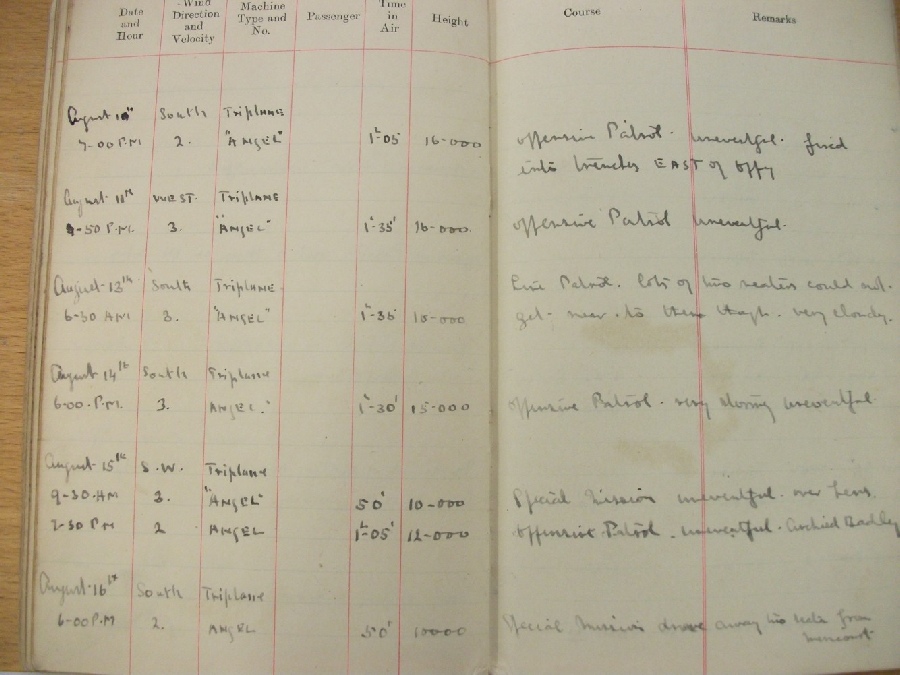 Date and Hour Wind Direction and Velocity Machine Type and No. Passenger Time in Air Height Course Remarks
August South Triplane
7-00 P.M 2. "ANGEL" 1-05 16-000 offensive Patrol. uneventful. fired
into trenches EAST of oppy
August 11th WEST. Triplane
-50 P.M. 3. "ANGEL" 1-35' 16-000. offensive Patrol uneventful.
August 13th South TRIPLANE Patrol. lots of two seaters could not.
6-30 AM 3. "ANGEL" 1-35' 15-000 get near to them though. very cloudy.
August 14th South Triplane
6-00 P.M. 3. ANGEL." 1-30' 15-000 offensive Patrol. very uneventful
August 15th S.W. Triplane
9-30 AM 3. "ANGEL" 50' 10-000 Special Mission uneventful. over Lens.
7-30 PM 2 ANGEL 1-05' 12-000 offensive Patrol. uneventful. Archied Badly
August 16th South Triplane
6-00 P.M 2. ANGEL 50' 10000 Special Mission drove away two from